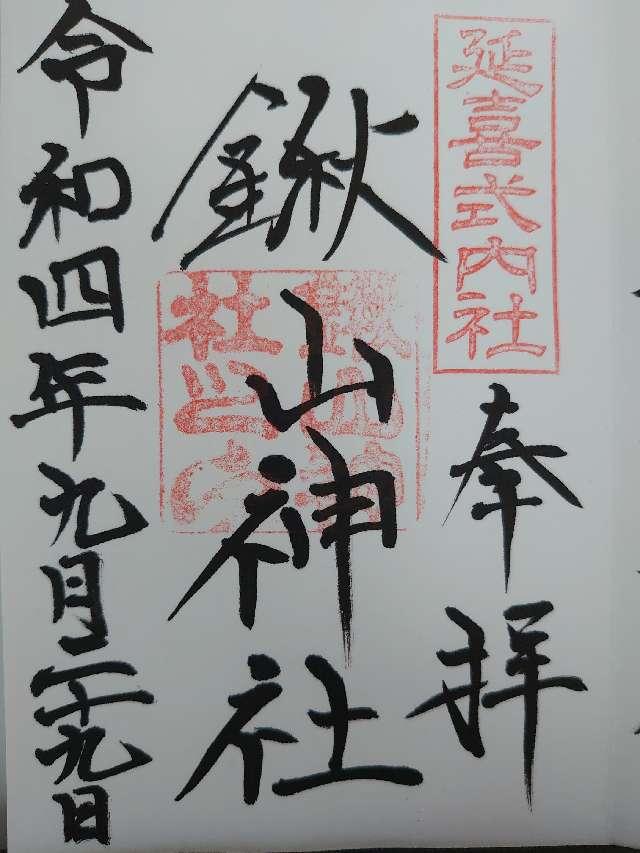 延喜式内社
奉拝
鍬山神社
鍬山神
社之印
令和四年九月二十九日